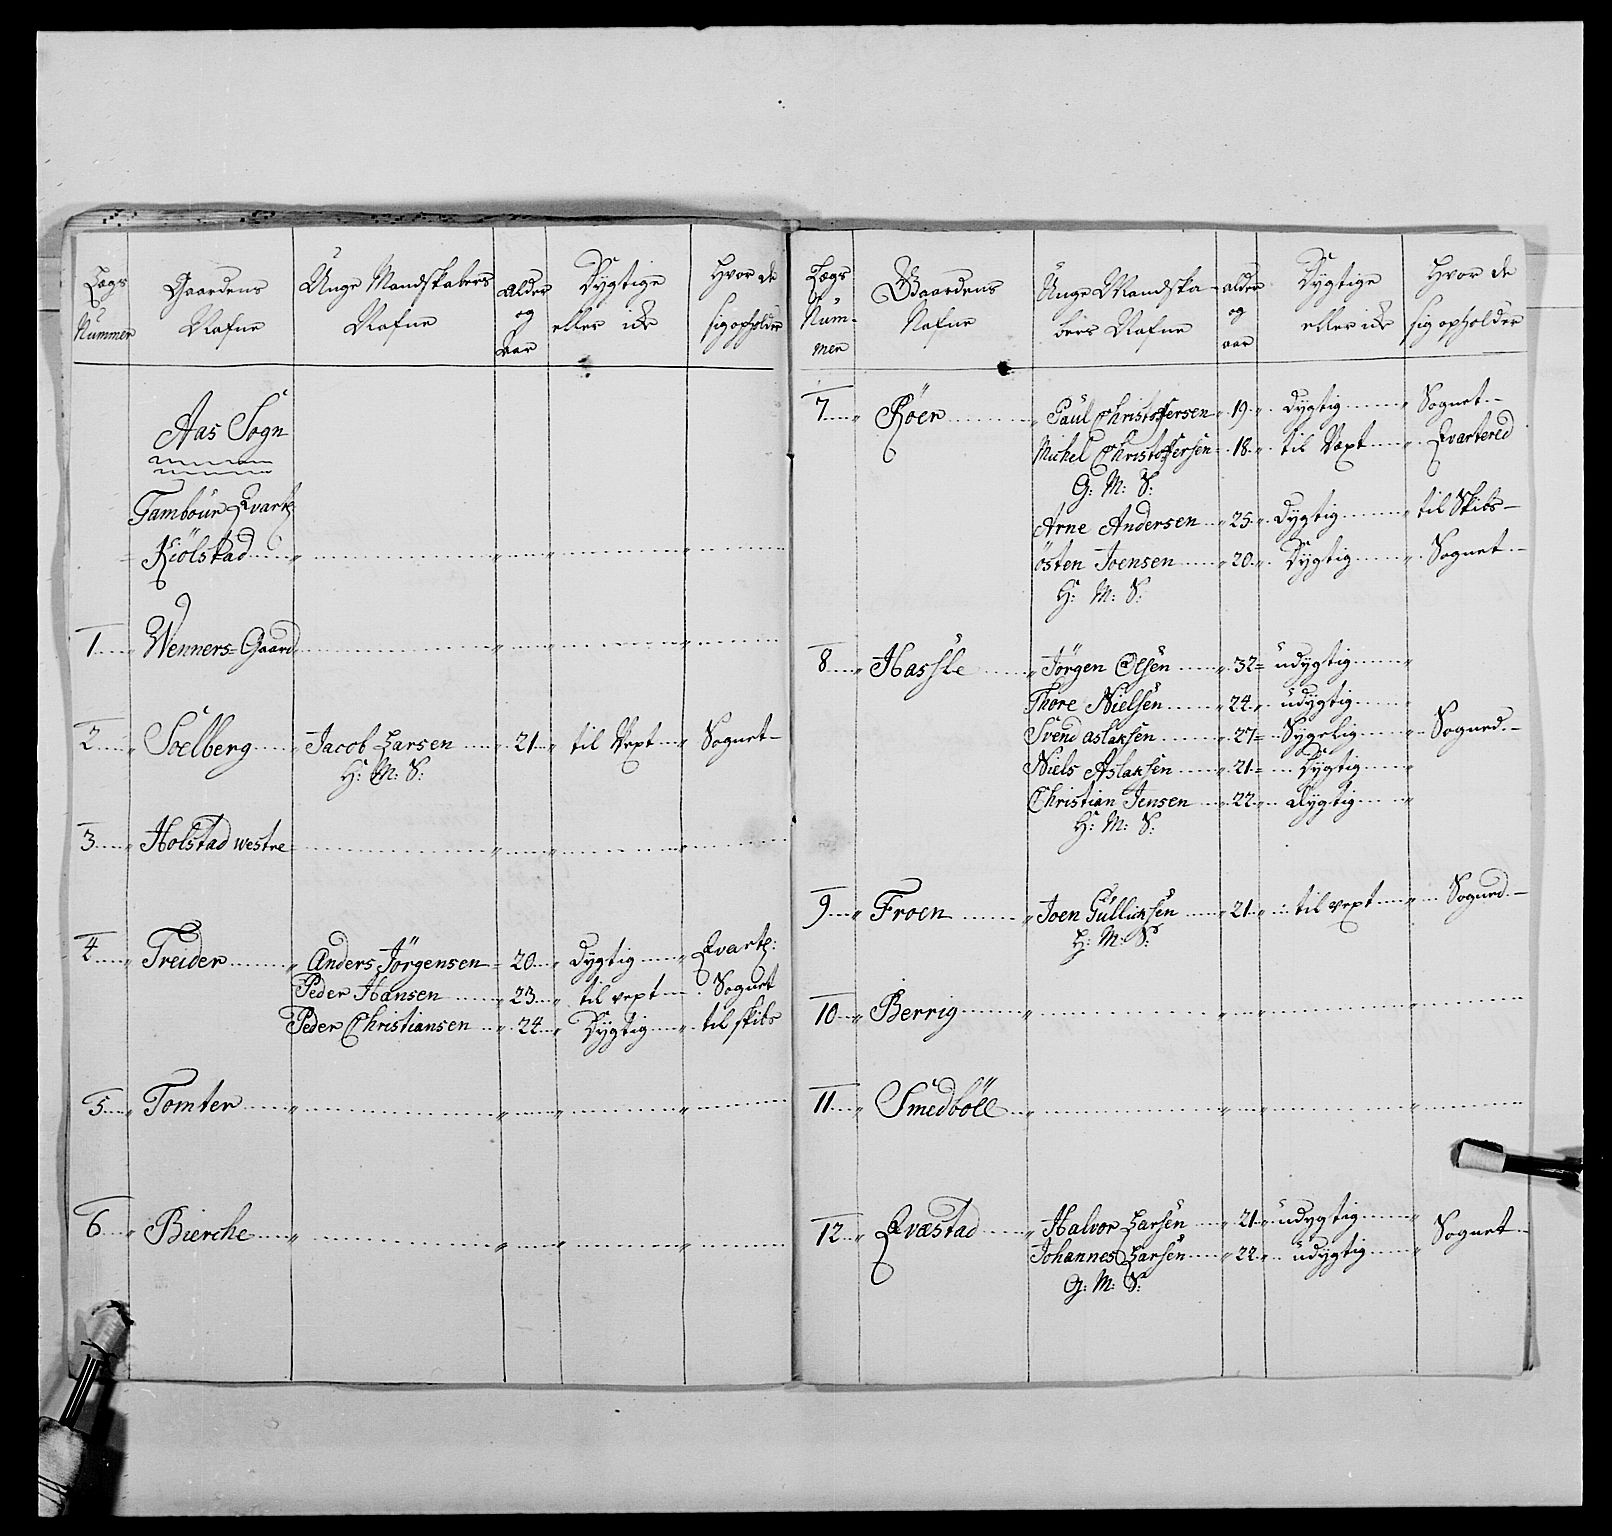 Lægs Nummer | Gaardens Nafne | Unge Mandskabers Nafne | Alder og Aar | Dygtige eller icke | Hvor de sig opholder
Aas Sogn
Tambour Qvart:
Kiölstad
1 Wenners=Gaard
2 Soelberg Jacob Larsen 21 til Vext Sognet
H: M: S:
3 Holstad westre
4 Treider Anders Jörgensen 20 Dygtig Qvart:
Peder Hansen 23 til vext Sognet
Peder Christiansen 24 Dygtig til skibs
5 Tomter
6 Bierche
Lægs Num-mer | Gaardens Nafne | Unge Mandska-bers Nafne | alder og aar | Dygtige eller icke | Hvor de sig opholder
7 Röer Paul Christoffersen 19 Dygtig Sognet
Michel Christoffersen 18 til Vext Qvartered
G: M: S:
Arne Andersen 25 Dygtig til Skibs
östen Joensen 20 Dygtig Sognet
H: M: S:
8 Hassle Jörgen Olsen 32 udygtig
Thore Nielsen 24 udygtig
Svend aslaksen 27 Sygelig Sogned
Niels Aslaksen 21 Dygtig
Christian Jensen 22 Dygtig
H: M: S:
9 Froen Joen Gulliksen 21 til vext Sogned
H: M: S:
10 Berrig
11 Smedböll
12 Qvæstad Halvor Larsen 21 udygtig Sognet
Johannes Larsen 22 udygtig
G: M: S: